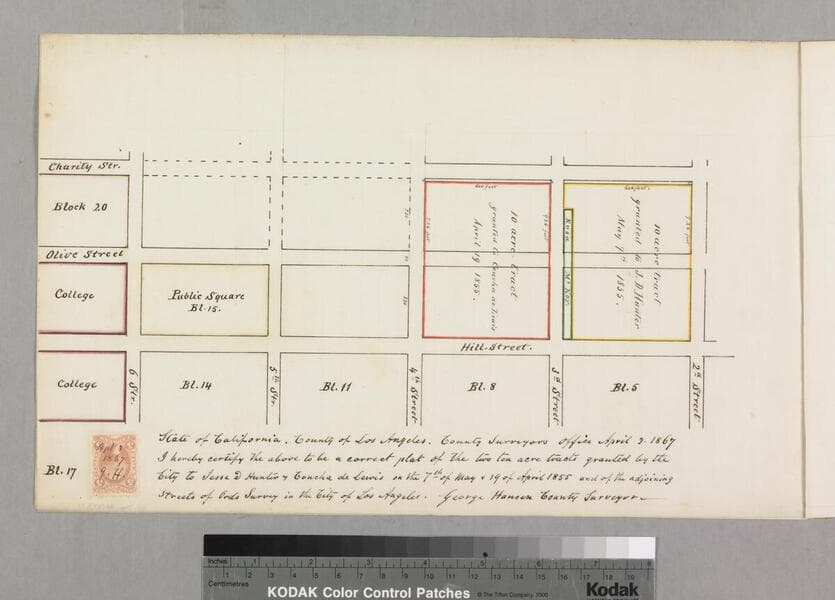 Charity Str.
Block 20
Olive Street
College
Public Square
Bl. 15.
10 acre tract
granted to Concha de Lewis
April 19 1855.
10 acre tract
granted to J. D. Hunter
May 7th 1855.
Hill-Street.
College
6 Str.
Bl. 14
5th Str.
Bl. 11
4th Street
Bl. 8
3d Street
Bl. 5
2d Street
Bl. 17
1867
State of California. County of Los Angeles. County Surveyors Office April 2. 1867
I hereby certify the above to be a correct plat of the two ten acre tracts granted by the
City to Jesse D Hunter & Concha de Lewis on the 7th of May & 19 of April 1855 and of the adjoining
Streets of Ords Survey in the City of Los Angeles. George Hansen County Surveyor
Inches 1 2 3 4 5 6 7 8
Centimetres 1 2 3 4 5 6 7 8 9 10 11 12 13 14 15 16 17 18 19
KODAK Color Control Patches
© The Tiffen Company, 2000
Kodak